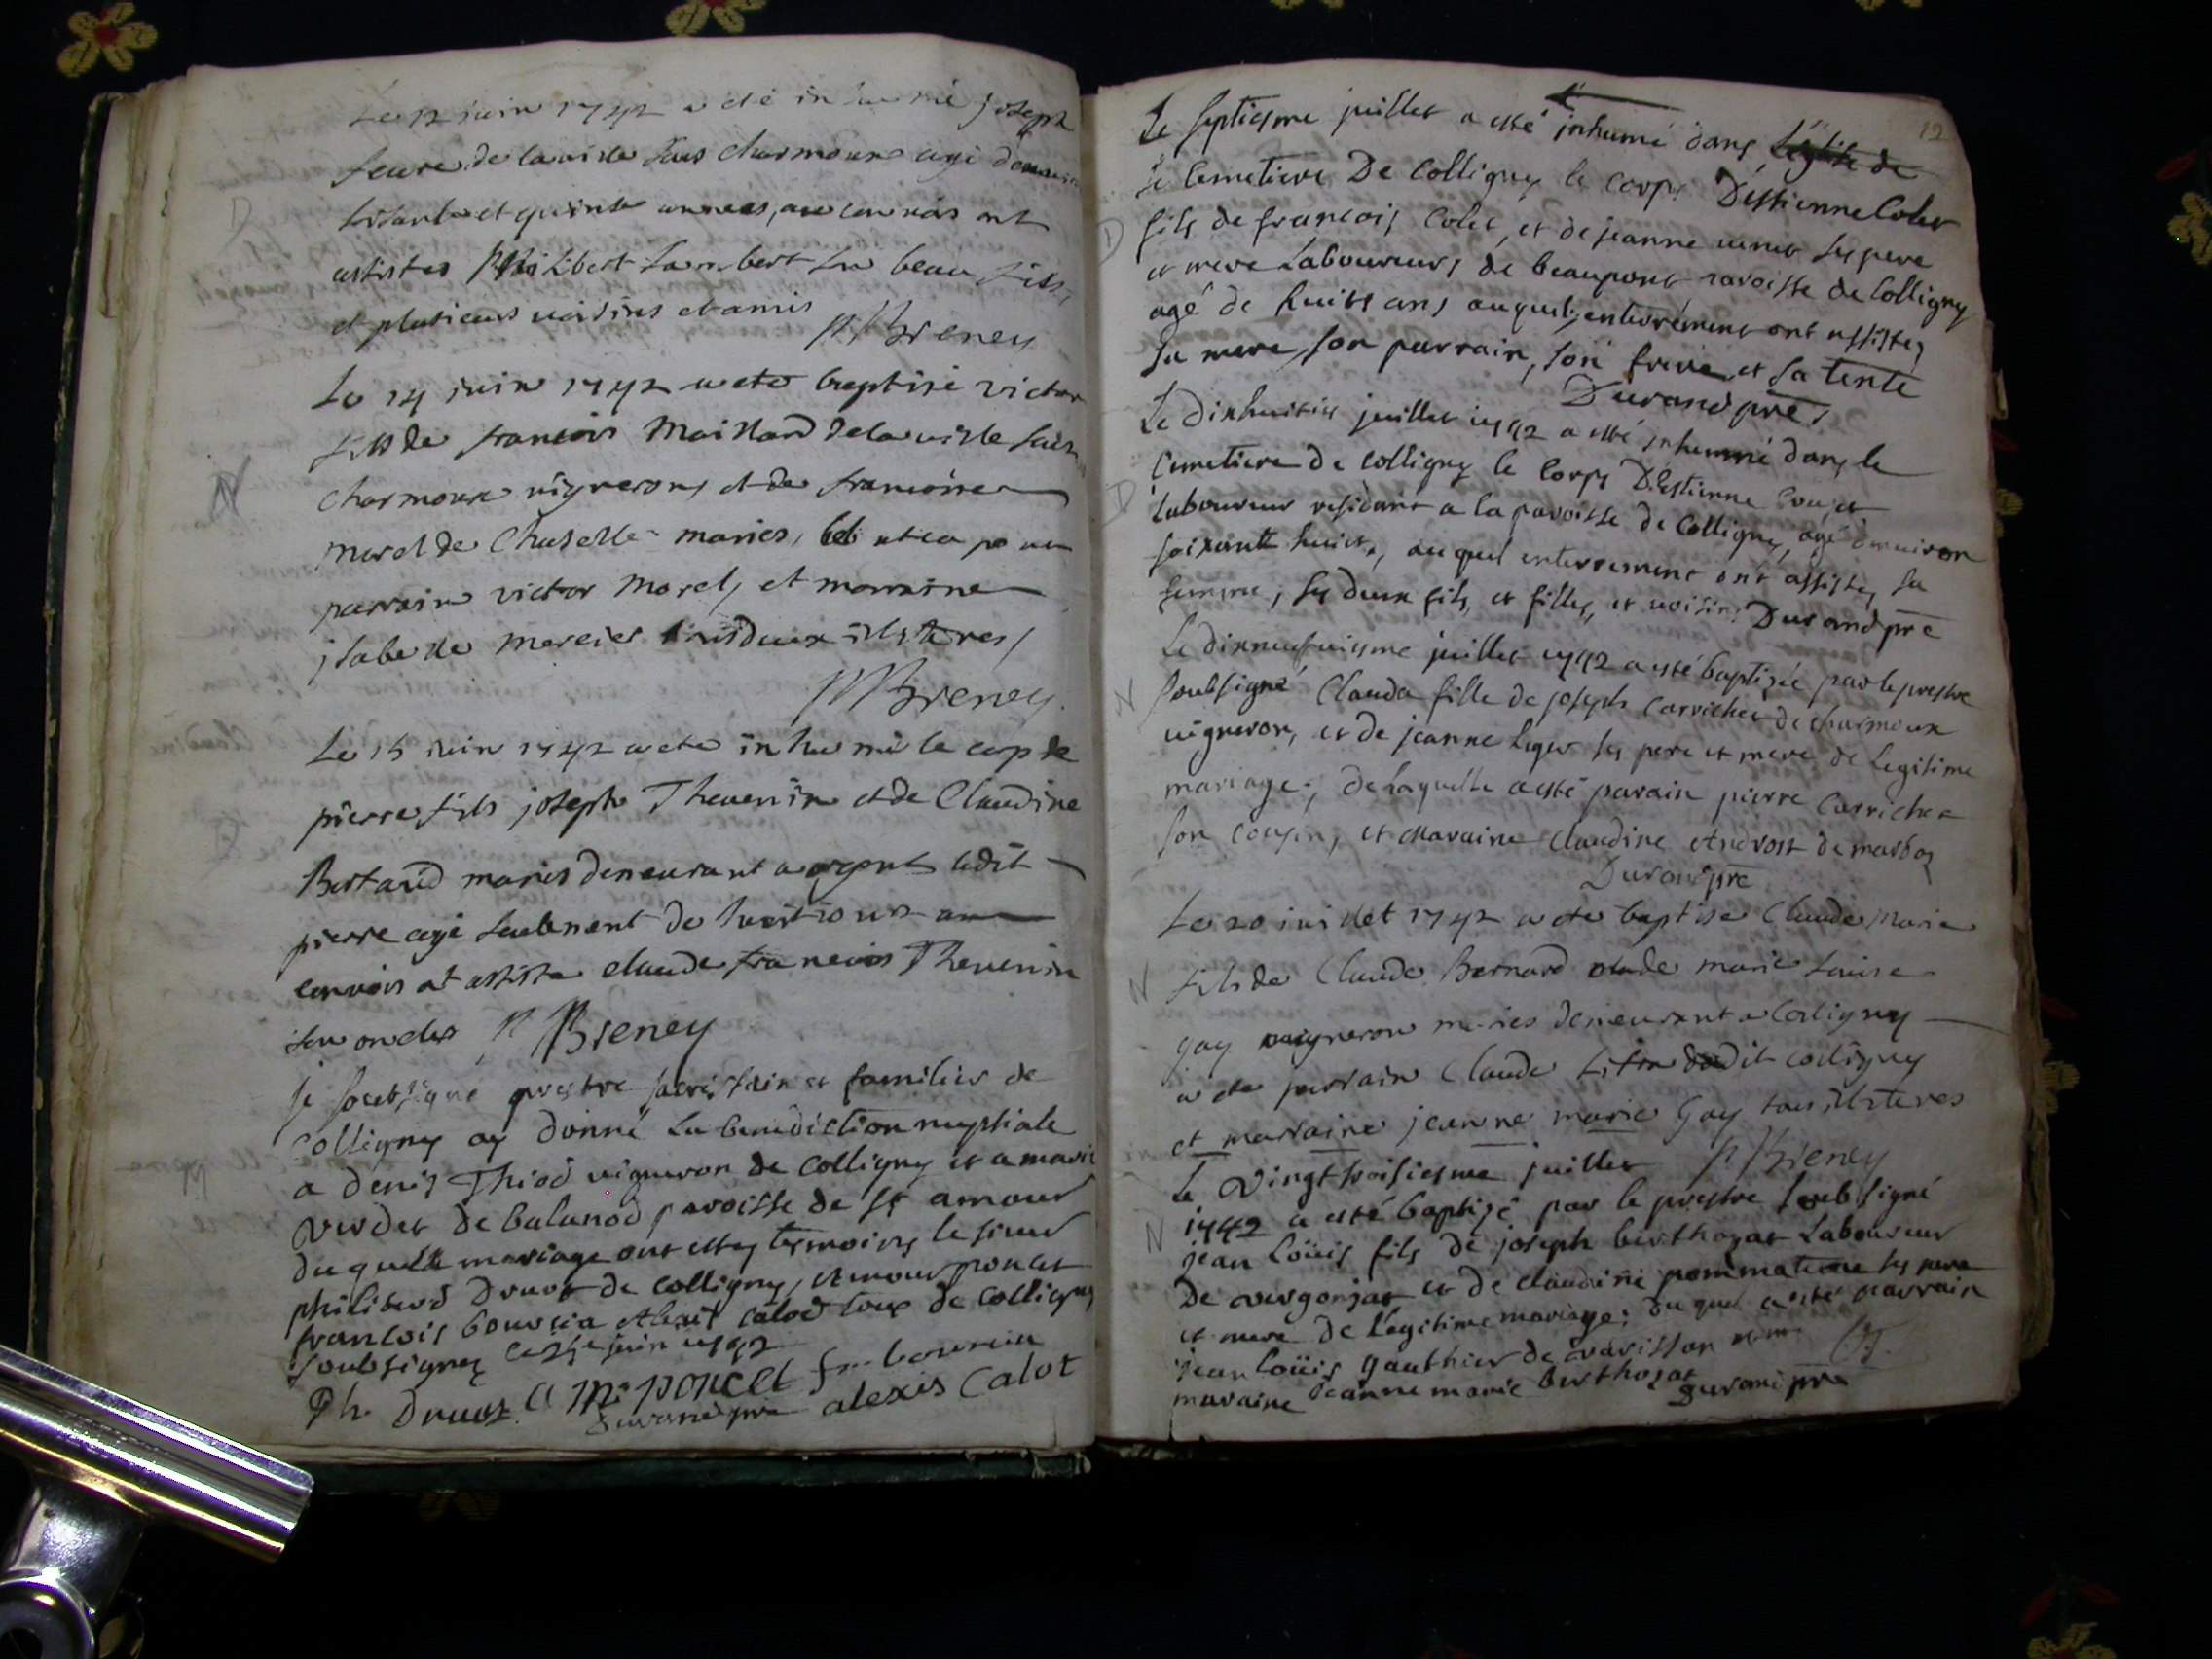 Le 12 juin 1742 a eté inhumé joseph
feure de la uille sous charmoux agé denuiron
soisante et quinse annees, au conuois ont
assistes philibert Lambert son beau fils
et plusieurs uoisins et amis p Breney
Le 14 juin 1742 a ete baptisé victor
fils de francois Maillard de la uille sous
charmoux uigneron et de francoise
morel de Chaselle maries, a eu pour
parrain victor Morel, et marraine
jsabelle Mercier tous deux illiteres /
p Breney
Le 15 juin 1742 a ete inhumé le corp de
pierre fils joseph Theuenin et de Claudine
Bertaud maries demeurant a ledit
pierre agé seulement de huit jours au
conuois at assisté claude francois Theuenin
son oncles p Breney
je soubsigné prestre sacristain et familier de
Colligny ay donné La benediction nuptiale
a denis Thiod uigneron de Colligny et a marie
verdet de balanod paroisse de St amour
duquelle mariage ont estez tesmoins le sieur
philiberd Druot de Colligny, Amour poncet
francois bouuier Alexis calod tous de Colligny
soubsignez ce juin 1742
Ph Druot A M poncet fr bouuier
Durand pre alexis Calot
12
Le septiesme juillet a esté inhumé dans L'églile de
le Cemetiere De Colligny le corps D'estienne Colet
D
fils de francois Colet, et de jeanne uenet ses pere
et mere Laboureurs de beaupont paroisse de Colligny
agé de huits ans auquel enterrement ont assistez
sa mere, son parrain, son frere, et sa tente
Durand pre
Le dixhuitie juillet 1742 a esté jnhummé dans le
Cemetiere de Colligny le Corps D'estienne
D
Laboureur residant a la paroisse de Colligny, agé denuiron
soixante huict, auquel enterrement ont assistez sa
femme, ses deux fils, et filles, et uoisins Durand pre
Le dixneufuiesme juillet 1742 a esté baptizée par le prestre
N
soubsigné Clauda fille de joseph Carrichet de charmoux
uigneron, et de jeanne leger ses pere et mere de legitime
mariage; de laquelle a esté parain pierre Carrichet
son cousin, et Maraine Claudine Androst de marboz
Durand pre
Le 20 juillet 1742 a ete baptise Claude Marie
N
fils de Claude Bernard et de marie Louise
gay uigneron maries demeurant a Coligny
a ete parrain Claude dudit colligny
et marraine jeanne marie Gay tous illiteres
Le Vingt troisiesme juillet p Breney
1742 a esté baptizé par le prestre soubsigné
N
jean Loüis fils de joseph berthozat Laboureur
De vergonjat et de claudine pommatier ses pere
et mere de Legitime mariage; duquel a esté parrain
jean loüis gauthier de
maraine jeanne marie berthozat Durand pre